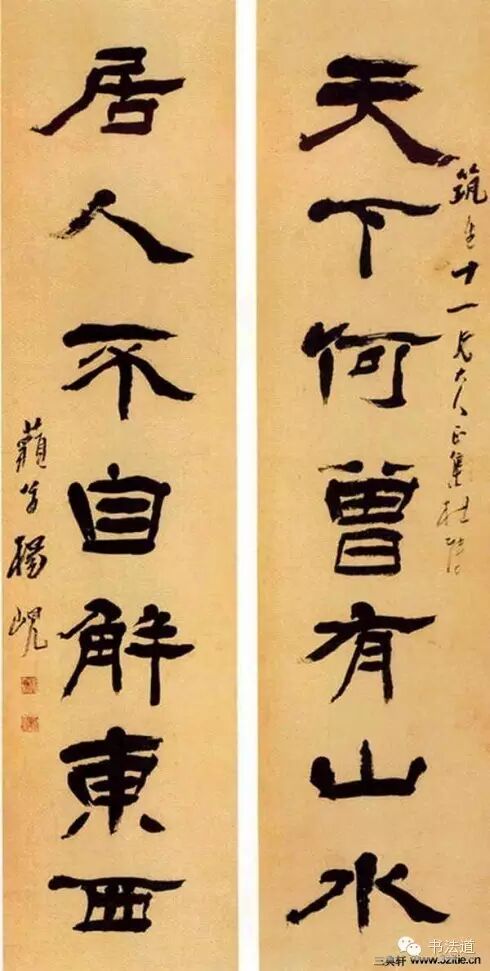 筑十一兄大人正集杜陸
天下何曾有山水
居人不自解東西
藐翁楊峴
书法道
三真轩 www.3zitie.cn